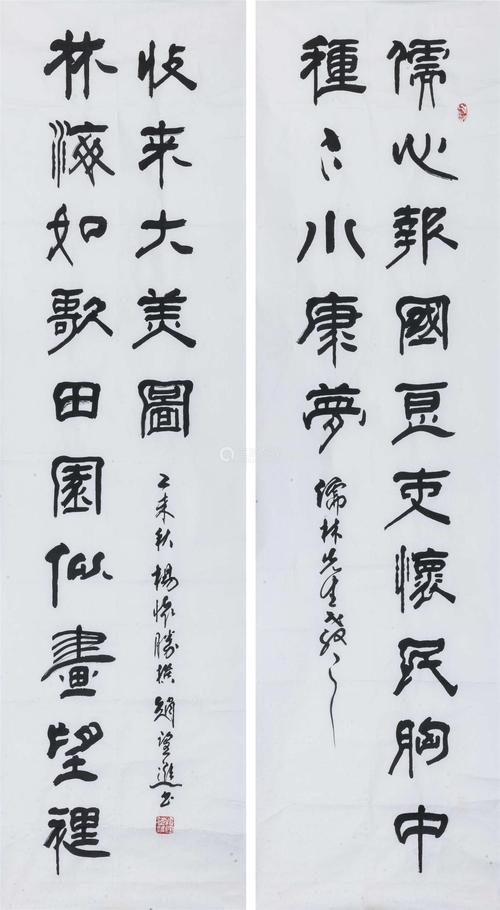 儒心報國吏懷民胸中
種々小康夢
儒林先生
林海如歌田園似畫望裡
收來大美圖
乙未秋楊懷勝撰趙望進書